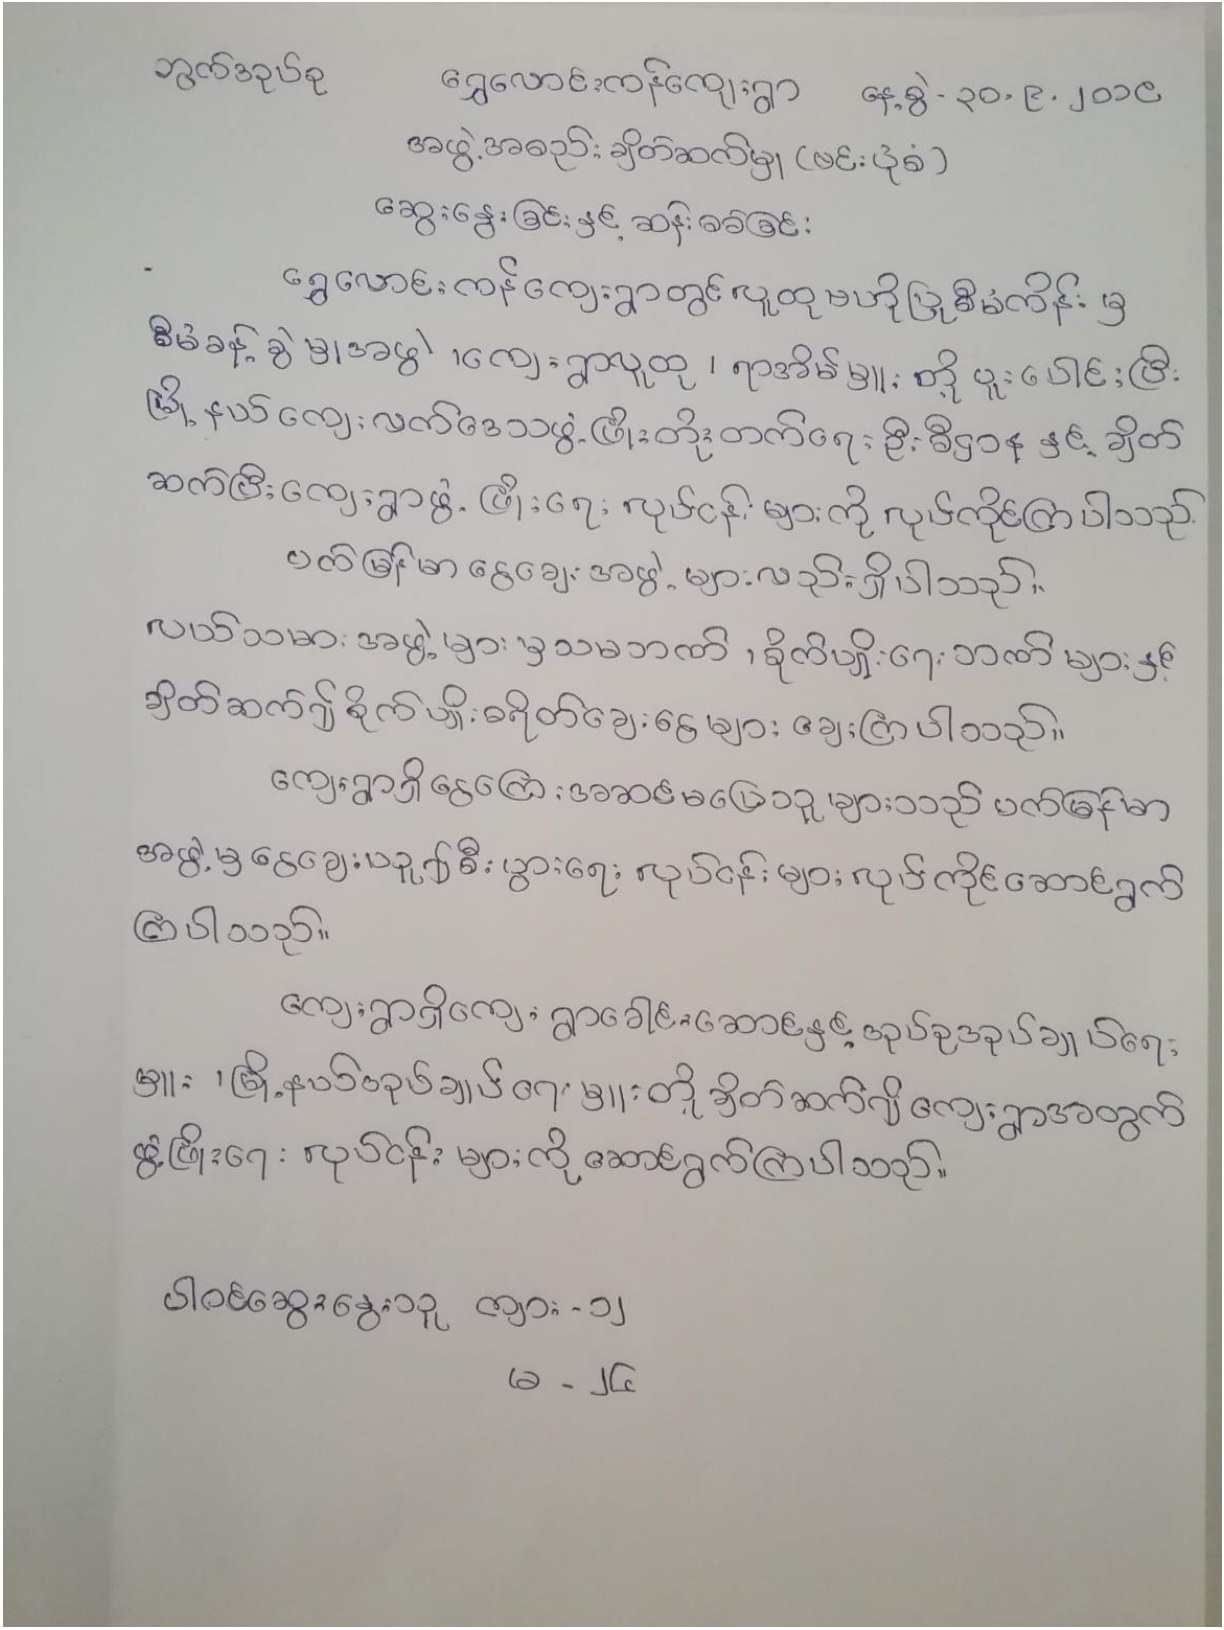 ဘွက်အုပ်စု ရွှေလောင်းကန်ကျေးရွာ နေ့စွဲ - ၃၀.၉.၂၀၁၉
အဖွဲ့အစည်း ချိတ်ဆက်မှု (ဗင်းပုံစံ)
ဆွေးနွေးခြင်းနှင့် ဆန်းစစ်ခြင်း
ရွှေလောင်းကန်ကျေးရွာတွင်လူထုဗဟိုပြုစီမံကိန်း မှ
စီမံခန့်ခွဲမှုအဖွဲ့ ၊ကျေးရွာလူထု ၊ ရာအိမ်မှူး တို့ ပူးပေါင်းပြီး
မြို့နယ်ကျေးလက်ဒေသဖွံ့ဖြိုးတိုးတက်ရေးဦးစီးဌာန နှင့် ချိတ်
ဆက်ပြီးကျေးရွာဖွံ့ ဖြိုးရေး လုပ်ငန်းများကို လုပ်ကိုင်ကြပါသည်
ပက်မြန်မာငွေချေးအဖွဲ့များလည်းရှိပါသည်။
လယ်သမားအဖွဲ့များ မှသမဘဏ် ၊ စိုက်ပျိုးရေးဘဏ်များနှင့်
ချိတ်ဆက်၍စိုက်ပျိုးစရိတ်ချေးငွေများ ချေးကြပါသည်။
ကျေးရွာရှိငွေကြေးအဆင်မပြေသူများသည် ပက်မြန်မာ
အဖွဲ့မှငွေချေးယူ၍စီးပွားရေး လုပ်ငန်းများလုပ်ကိုင်ဆောင်ရွက်
ကြပါသည်။
ကျေးရွာရှိကျေး ရွာခေါင်းဆောင်နှင့်အုပ်စုအုပ်ချုပ်ရေး
မှူး ၊မြို့နယ်အုပ်ချုပ်ရေးမှူးတို့ ချိတ်ဆက်၍ကျေးရွာအတွက်
ဖွံ့ဖြိုးရေး လုပ်ငန်းများကိုဆောင်ရွက်ကြပါသည်။
ပါဝင်ဆွေးနွေးသူ ကျား - ၁၂
မ - ၂၄